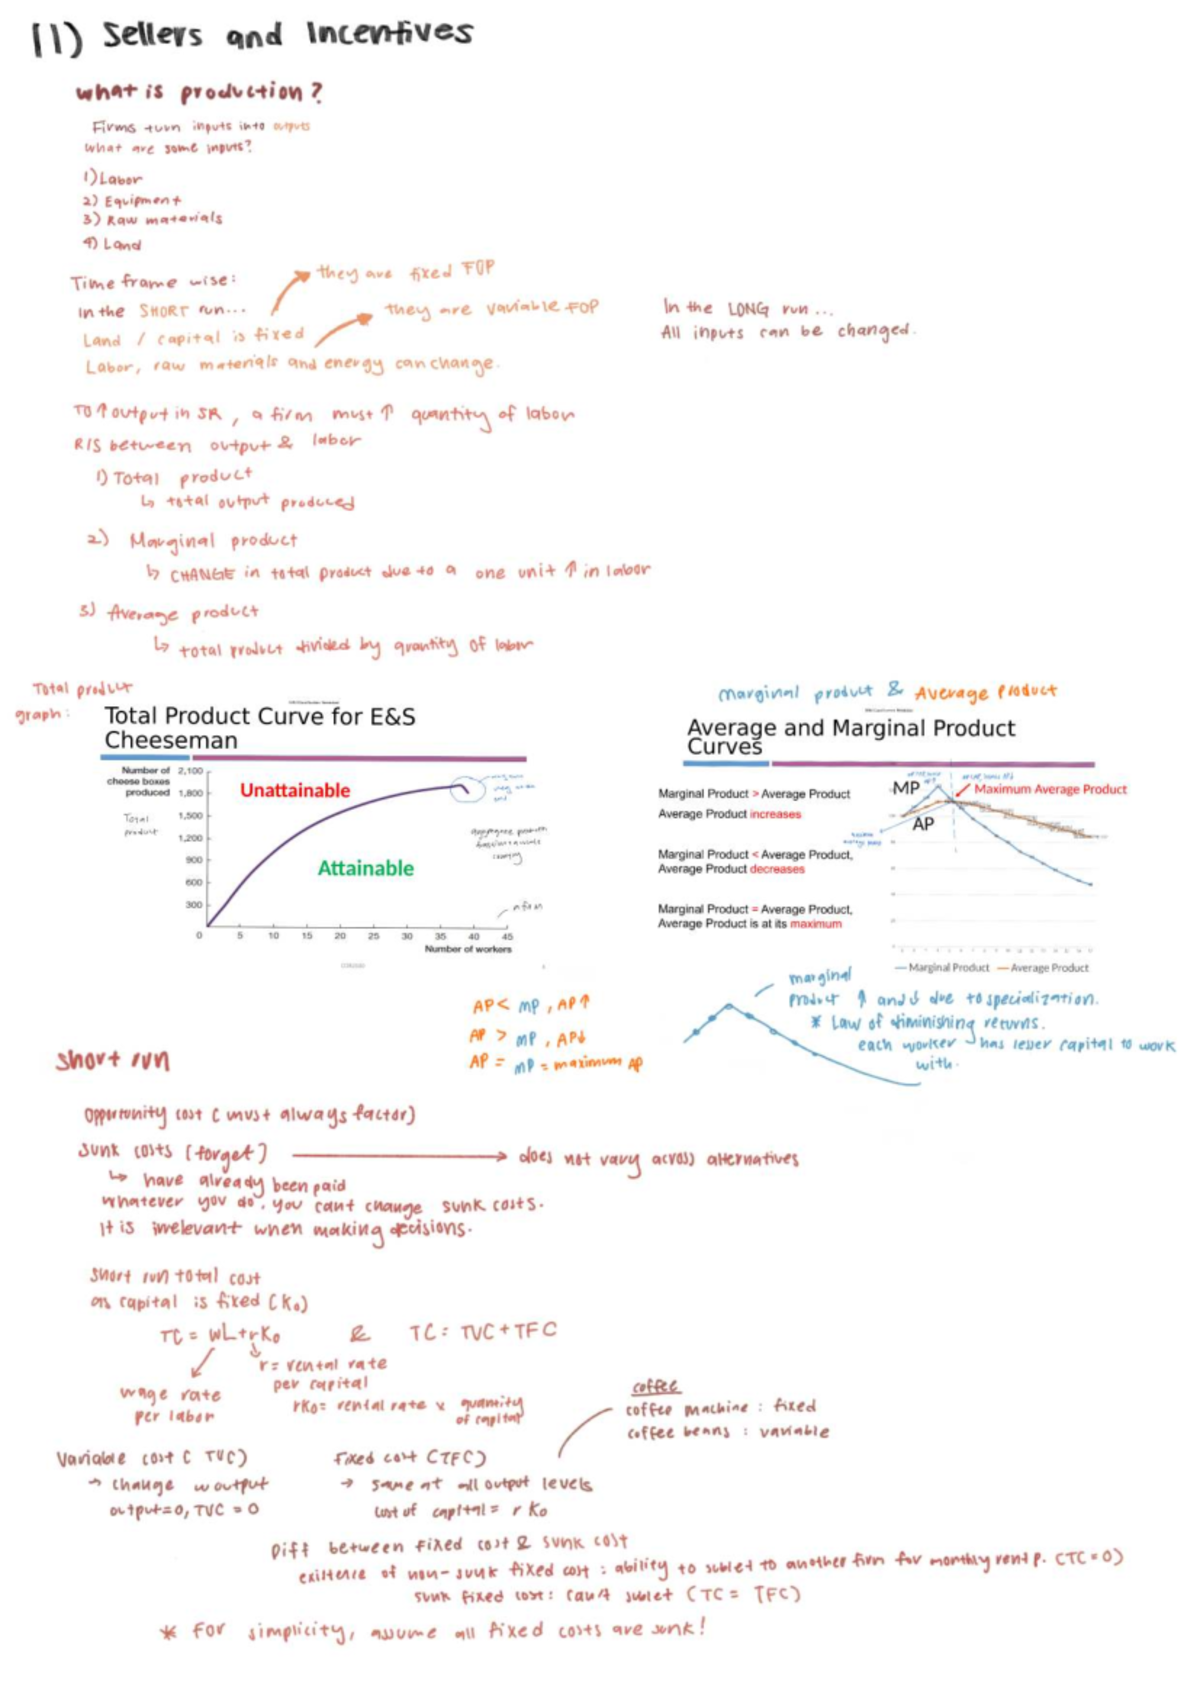 (1) Sellers and Incentives
What is production?
Firms turn inputs into outputs
What are some inputs?
1) Labor
2) Equipment
3) Raw materials
4) Land
Time frame wise:
they are fixed FOP
In the SHORT run...
they are variable FOP
Land / capital is fixed
Labor, raw materials and energy can change.
In the LONG run...
All inputs can be changed.
TO ↑ output in SR, a firm must ↑ quantity of labor
R/S between output & labor
1) Total product
↳ total output produced
2) Marginal product
↳ CHANGE in total product due to a one unit ↑ in labor
3) Average product
↳ total product divided by quantity of labor
Total product
graph:
Total Product Curve for E&S
Cheeseman
Number of
cheese boxes
produced
Total
product
2,100
1,800
1,500
1,200
900
600
300
0 5 10 15 20 25 30 35 40 45
Number of workers
Unattainable
Attainable
marginal product & Average Product
Average and Marginal Product
Curves
Marginal Product > Average Product
Average Product increases
Marginal Product < Average Product,
Average Product decreases
Marginal Product = Average Product,
Average Product is at its maximum
MP
AP
Maximum Average Product
Marginal Product Average Product
AP < MP, AP↑
AP > MP, AP↓
AP = MP = maximum AP
marginal
product ↑ and ↓ due to specialization.
* Law of diminishing returns.
each worker has lesser capital to work
with.
Short run
Opportunity cost (must always factor)
Sunk costs (forget) → does not vary across alternatives
↳ have already been paid
Whatever you do, you cant change sunk costs.
It is irrelevant when making decisions.
Short run total cost
as capital is fixed (K₀)
TC = wL+rK₀ & TC = TVC + TFC
wage rate
per labor
r = rental rate
per capital
rK₀ = rental rate x quantity
of capital
coffee
coffee machine : fixed
coffee beans : variable
Variable cost (TVC)
→ change w output
output=0, TVC = 0
Fixed cost (TFC)
→ same at all output levels
cost of capital = r K₀
Diff between fixed cost & sunk cost
existence of non-sunk fixed cost : ability to sublet to another firm for monthly rent p. (TC=0)
sunk fixed cost: can't sublet (TC = TFC)
* For simplicity, assume all fixed costs are sunk!